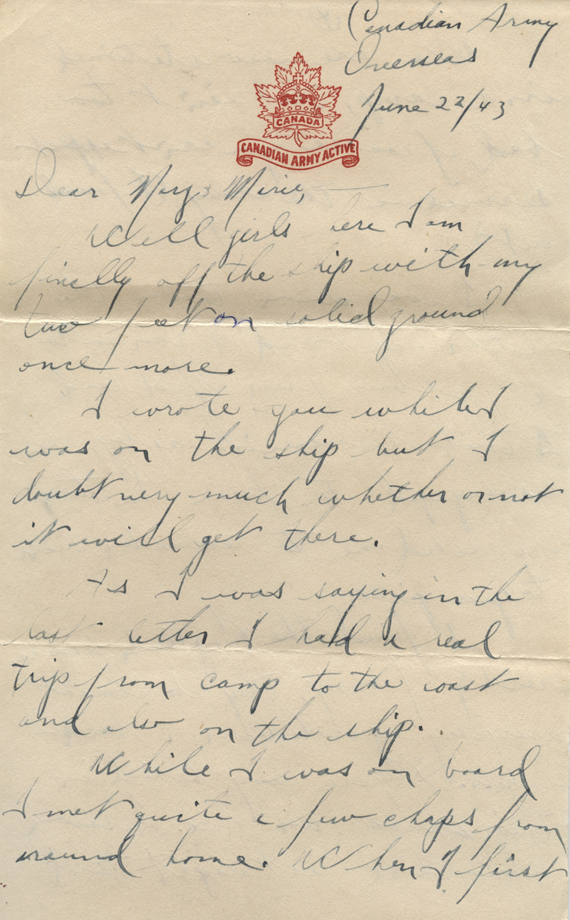 Canadian Army
Overseas
June 22/43
CANADA
CANADIAN ARMY ACTIVE
Dear Mary & Marie,
Well girls here I am
finelly off the ship with my
two feet on solid ground
once more.
I wrote you while I
was on the ship but I
doubt very much whether or not
it will get there.
As I was saying in the
last letter I had a real
trip from camp to the coast
and also on the ship.
While I was on board
I met quite a few chaps from
around home. When I first